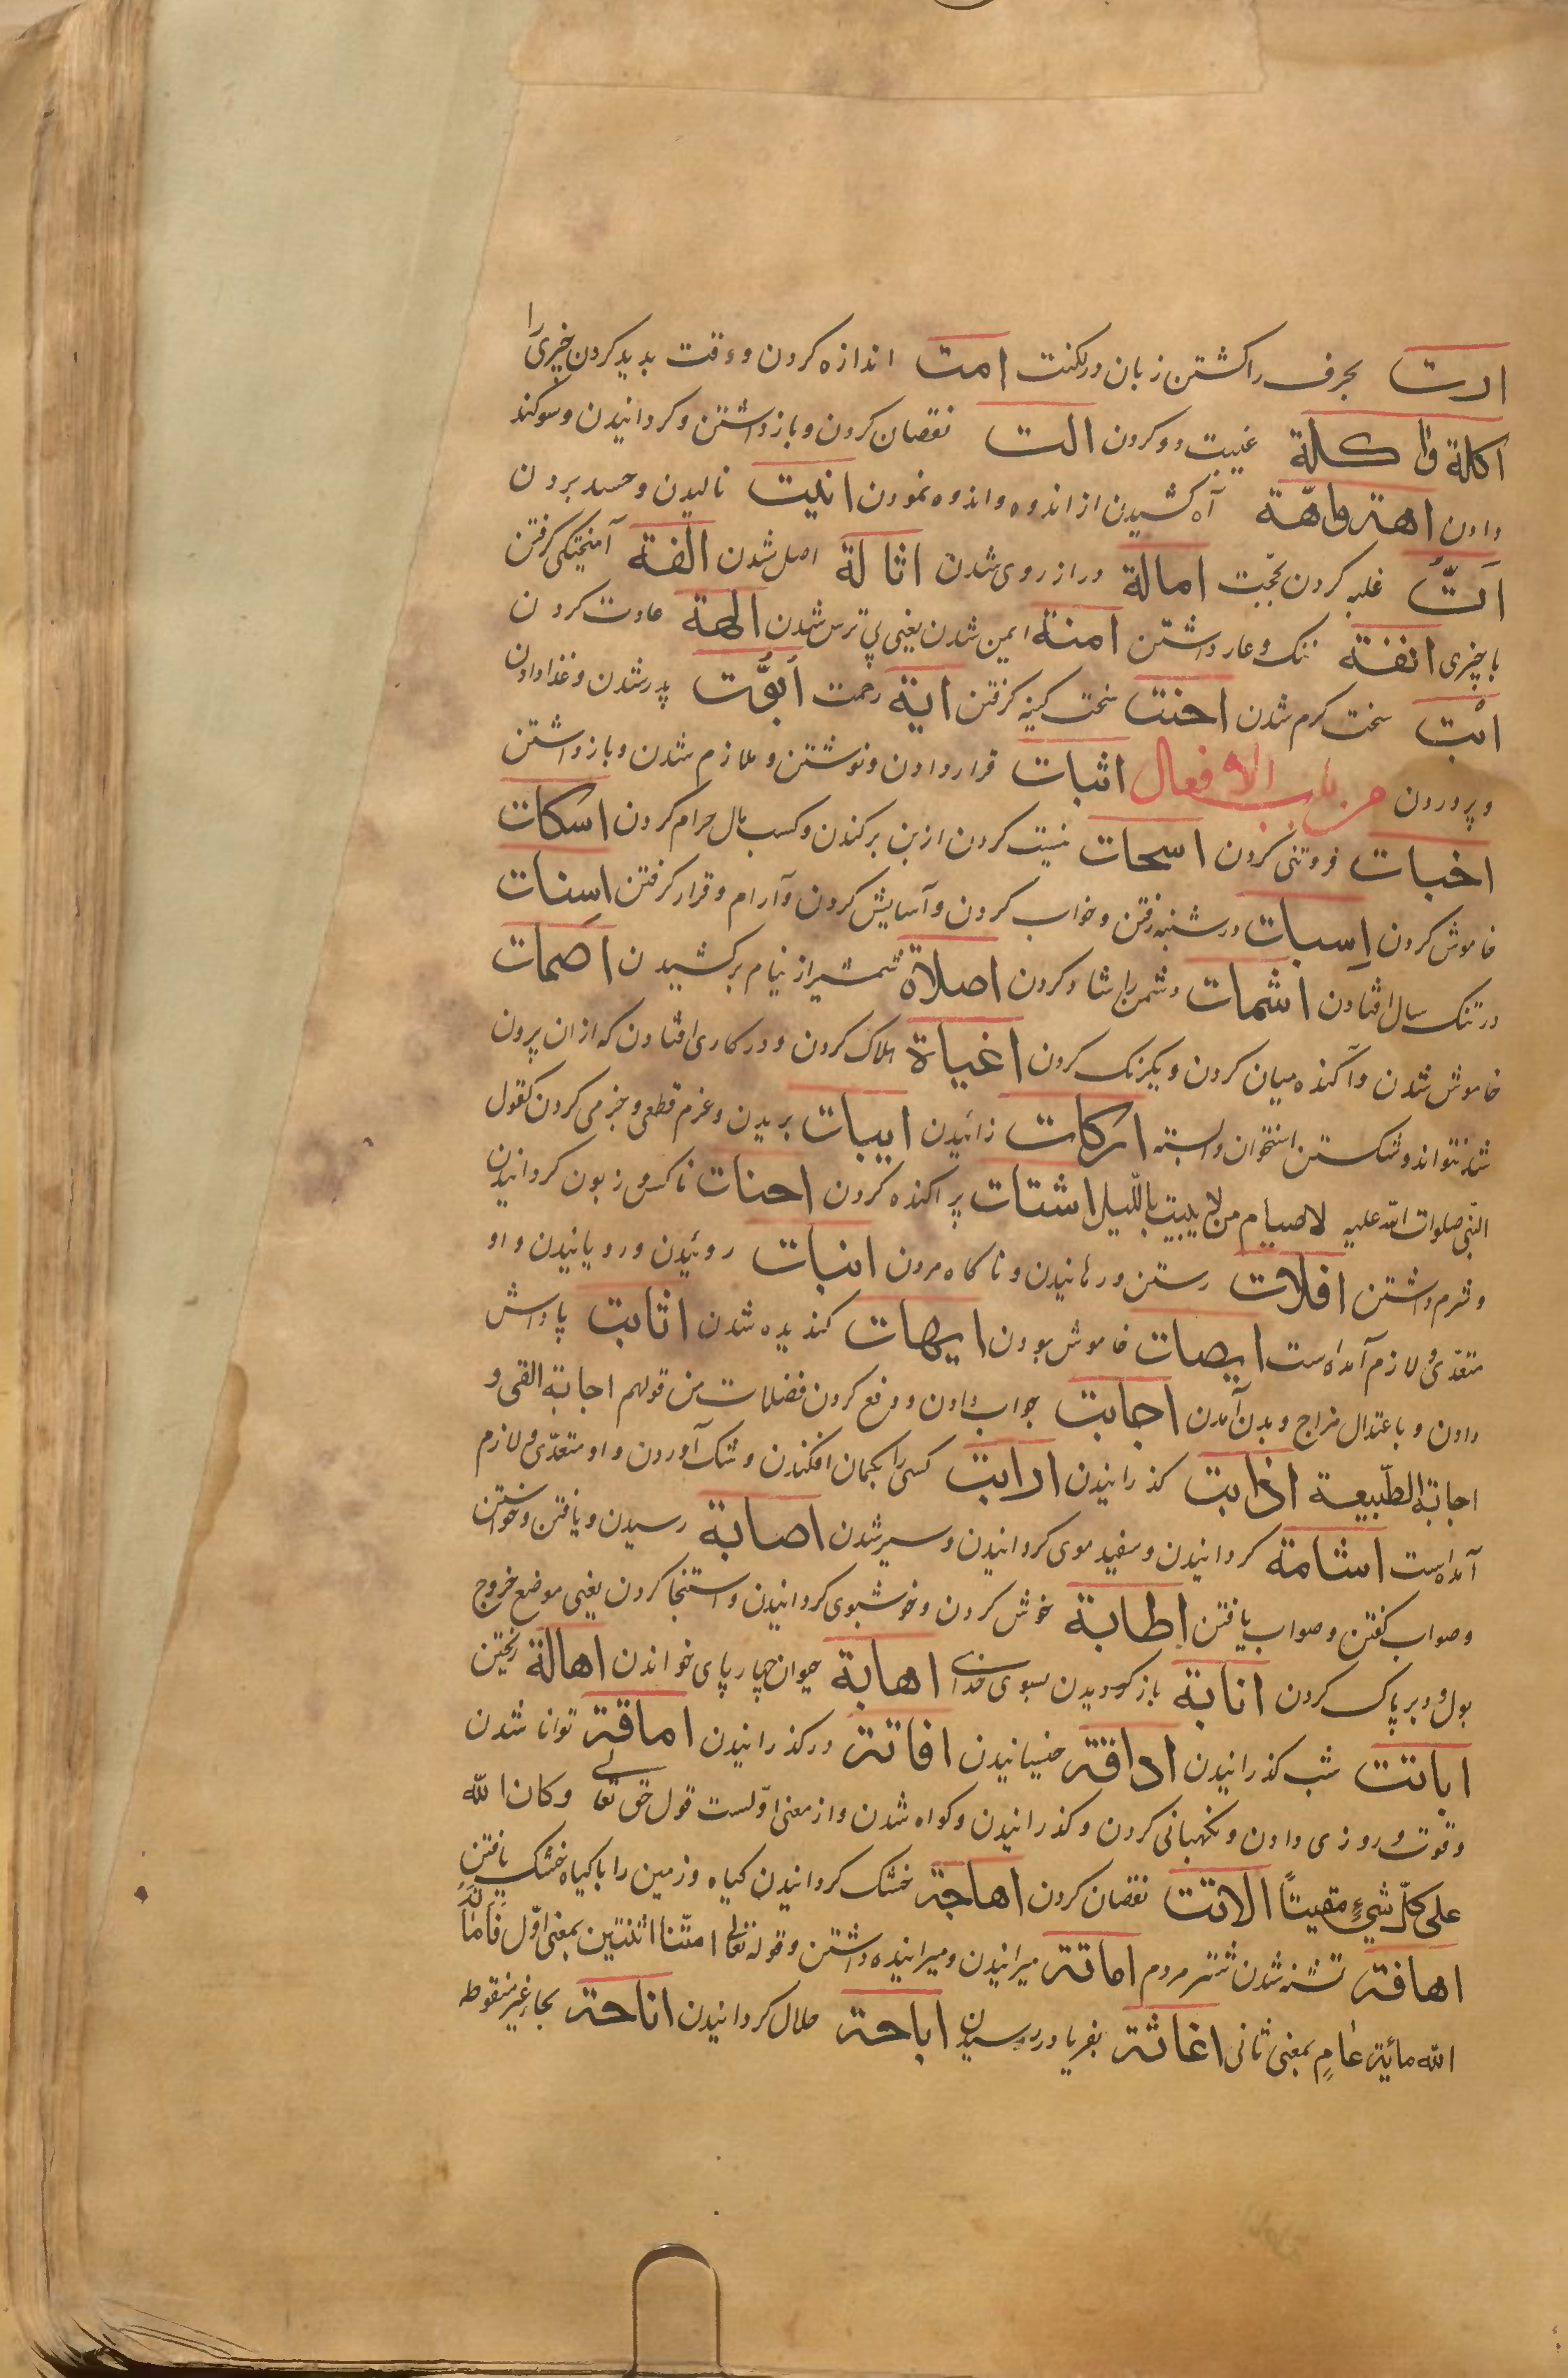 ارت بحرف راکشتن زبان در لکنت امت اندازه کردن و وقت بدید کردن چیزی را
اکلة واکلة غیبت و و کردن الت نقصان کردن و باز داشتن و کردانیدن و سوکند
دادن اهة واهّة آه کشیدن از اندوه و اندوه نمودن انیت نالیدن و حسد بردن
اَتّ غلبه کردن بحجّت امالة دراز روی شدن اثالة اصل شدن الفة آمیختکی کرفتن
با چیزی انفة ننک و عار داشتن امنة ایمن شدن یعنی بی ترس شدن الهة عادت کردن
ابْت سخت کرم شدن احنت سخت کینه کرفتن ایة رحمت اُبوَّت پدر شدن و غذا دادن
و پروردن من باب الافعال اثبات قرار دادن و نوشتن و ملازم شدن و باز داشتن
اخبات فروتنی کردن اسحات نیست کردن از بن برکندن و کسب مال حرام کردن اسکات
خاموش کردن اِسبات در شنبه رفتن و خواب کردن و آسایش کردن و آرام و قرار کرفتن اسِنات
در تنک سال افتادن اشمات دشمن را شاد کردن اصلاة شمشیر از نیام برکشیدن اصمات
خاموش شدن و آکنده میان کردن و یکرنک کردن اغیاة هلاک کردن و در کاری افتادن که از ان بیرون
شد نتواند و شکستن استخوان وابسته ارکات زائیدن ابیات بریدن و عزم قطعی و جزمی کردن کقول
النّبی صلوات الله علیه لا صیام من لا یبیت باللّیل اشتات پراکنده کردن احنات ناکس و زبون کردانیدن
و شرم داشتن افلات رستن و رهانیدن و ناکاه مردن انبات روئیدن و رویانیدن و او
متعدّی و لازم آمده است ایصات خاموش بودن ایهات کندیده شدن اثابت پاداش
دادن و باعتدال مزاج و بدن آمدن اجابت جواب دادن و دفع کردن فضلات من قولهم اجابة القی و
اجابة الطّبیعة اذابت کذرانیدن ارابت کسی را بکمان افکندن و شک آوردن و او متعدّی و لازم
آمده است اشامة کردانیدن و سفید موی کردانیدن و سیر شدن اصابة رسیدن و یافتن و خواستن
و صواب کفتن و صواب یافتن اطابة خوش کردن و خوشبوی کردانیدن و استنجا کردن یعنی موضع خروج
بول و دبر پاک کردن انابة باز کردیدن بسوی خدای اهابة حیوان چهار پای خواندن اهالة ریختن
اباتت شب کذرانیدن اداقة خیسانیدن افاتة در کذرانیدن اماقة توانا شدن
و قوت و روزی دادن و نکهبانی کردن و کذرانیدن و کواه شدن و از معنی اوّلست قول حق تعالی و کان الله
علی کلّ شیءٍ مقیتاً الاتت نقصان کردن اهاجة خشک کردانیدن کیاه و زمین را با کیاه خشک یافتن
اهافة تشنه شدن شتر مردم اماتة میرانیدن و میرانیده داشتن و قوله تعالی امتّنا اثنتین بمعنی اوّل فَاَماتَهُ
الله مائة عامٍ بمعنی ثانی اغاثة بفریاد رسیدن اباحة حلال کردانیدن اناحة بحاء غیر منقوطه